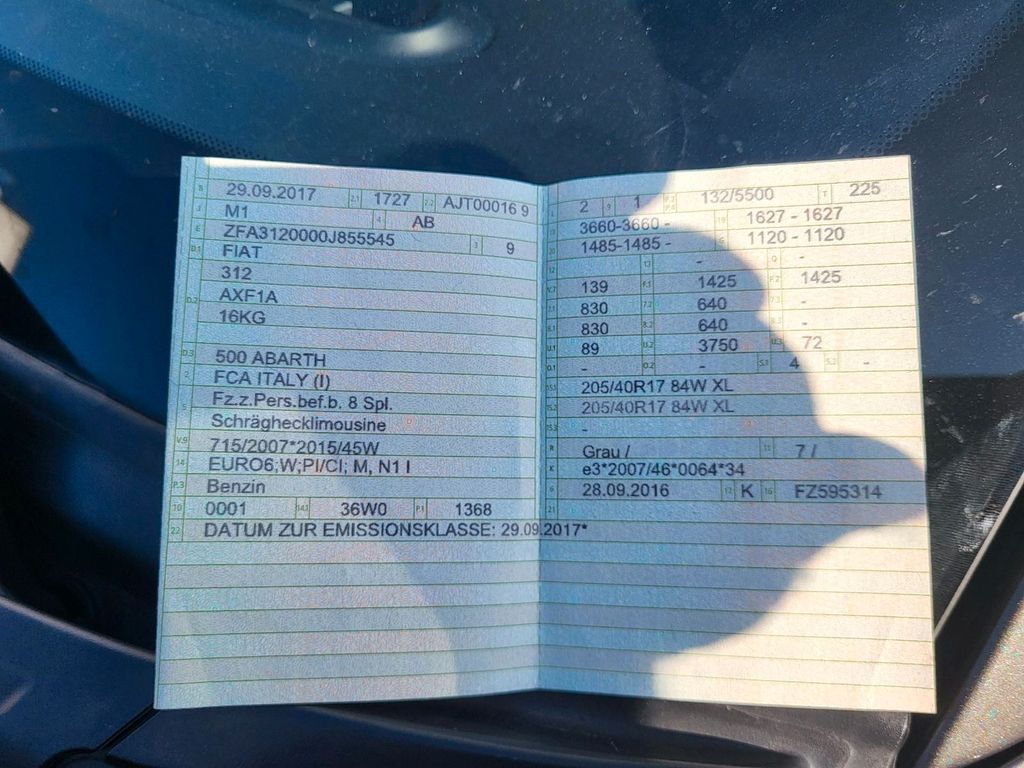 B 29.09.2017 2.1 1727 2.2 AJT00016 9
J M1 4 AB
E ZFA3120000J855545 3 9
D.1 FIAT
312
D.2 AXF1A
16KG
D.3 500 ABARTH
2 FCA ITALY (I)
Fz.z.Pers.bef.b. 8 Spl.
5 Schräghecklimousine
V.9 715/2007*2015/45W
14 EURO6;W;PI/CI; M, N1 I
P.3 Benzin
10 0001 14.1 36W0 P.1 1368
22 DATUM ZUR EMISSIONSKLASSE: 29.09.2017*
L 2 9 1 P.2 P.4 132/5500 T 225
18 3660-3660 - 19 1627 - 1627
20 1485-1485 - G 1120 - 1120
12 - 13 - Q -
V.7 139 F.1 1425 F.2 1425
7.1 830 7.2 640 7.3 -
8.1 830 8.2 640 8.3 -
U.1 89 U.2 3750 U.3 72
O.1 - O.2 - S.1 4 S.2 -
15.1 205/40R17 84W XL
15.2 205/40R17 84W XL
15.3 -
R Grau / 11 7 /
K e3*2007/46*0064*34
6 28.09.2016 17 K 16 FZ595314
21